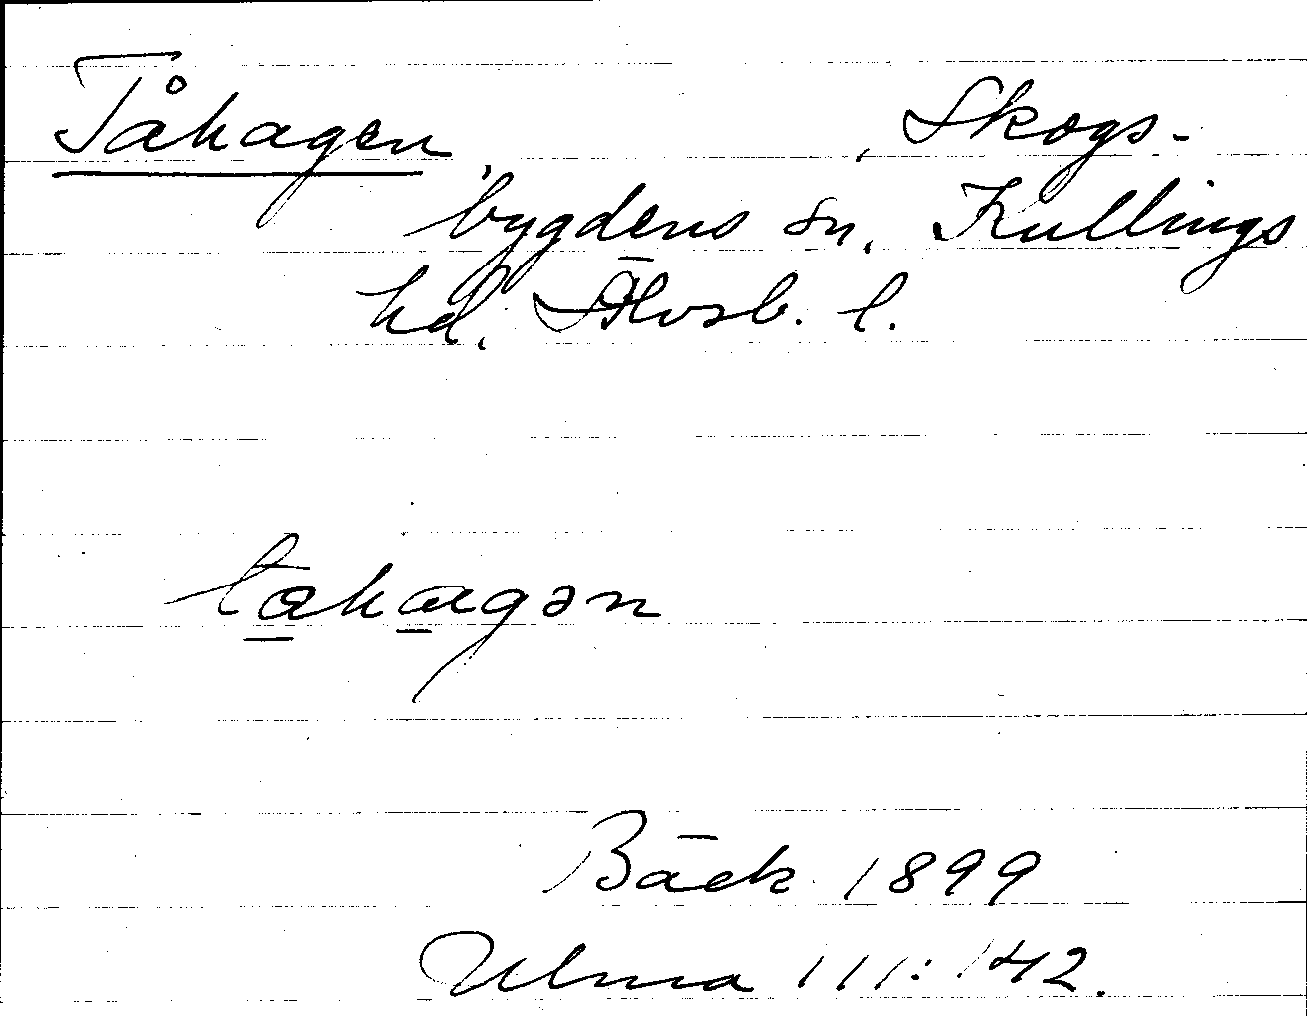 Tåhagen, Skogs-
bygdens sn, Kullings
hd. Älvsb. l.
tahagən
Bäck 1899
Ulma 111:142.